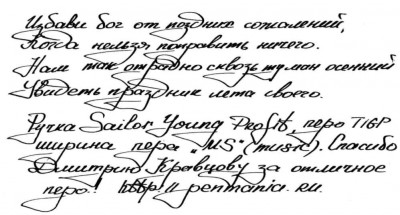 Избави бог от поздних сожалений,
Когда нельзя поправить ничего.
Нам так отрадно сквозь туман осенний
Увидеть праздник лета своего.
Ручка Sailor Young Profit, перо 71GP
ширина пера "MS" (music). Спасибо
Дмитрию Кравцову за отличное
перо! http:// penmania. ru.